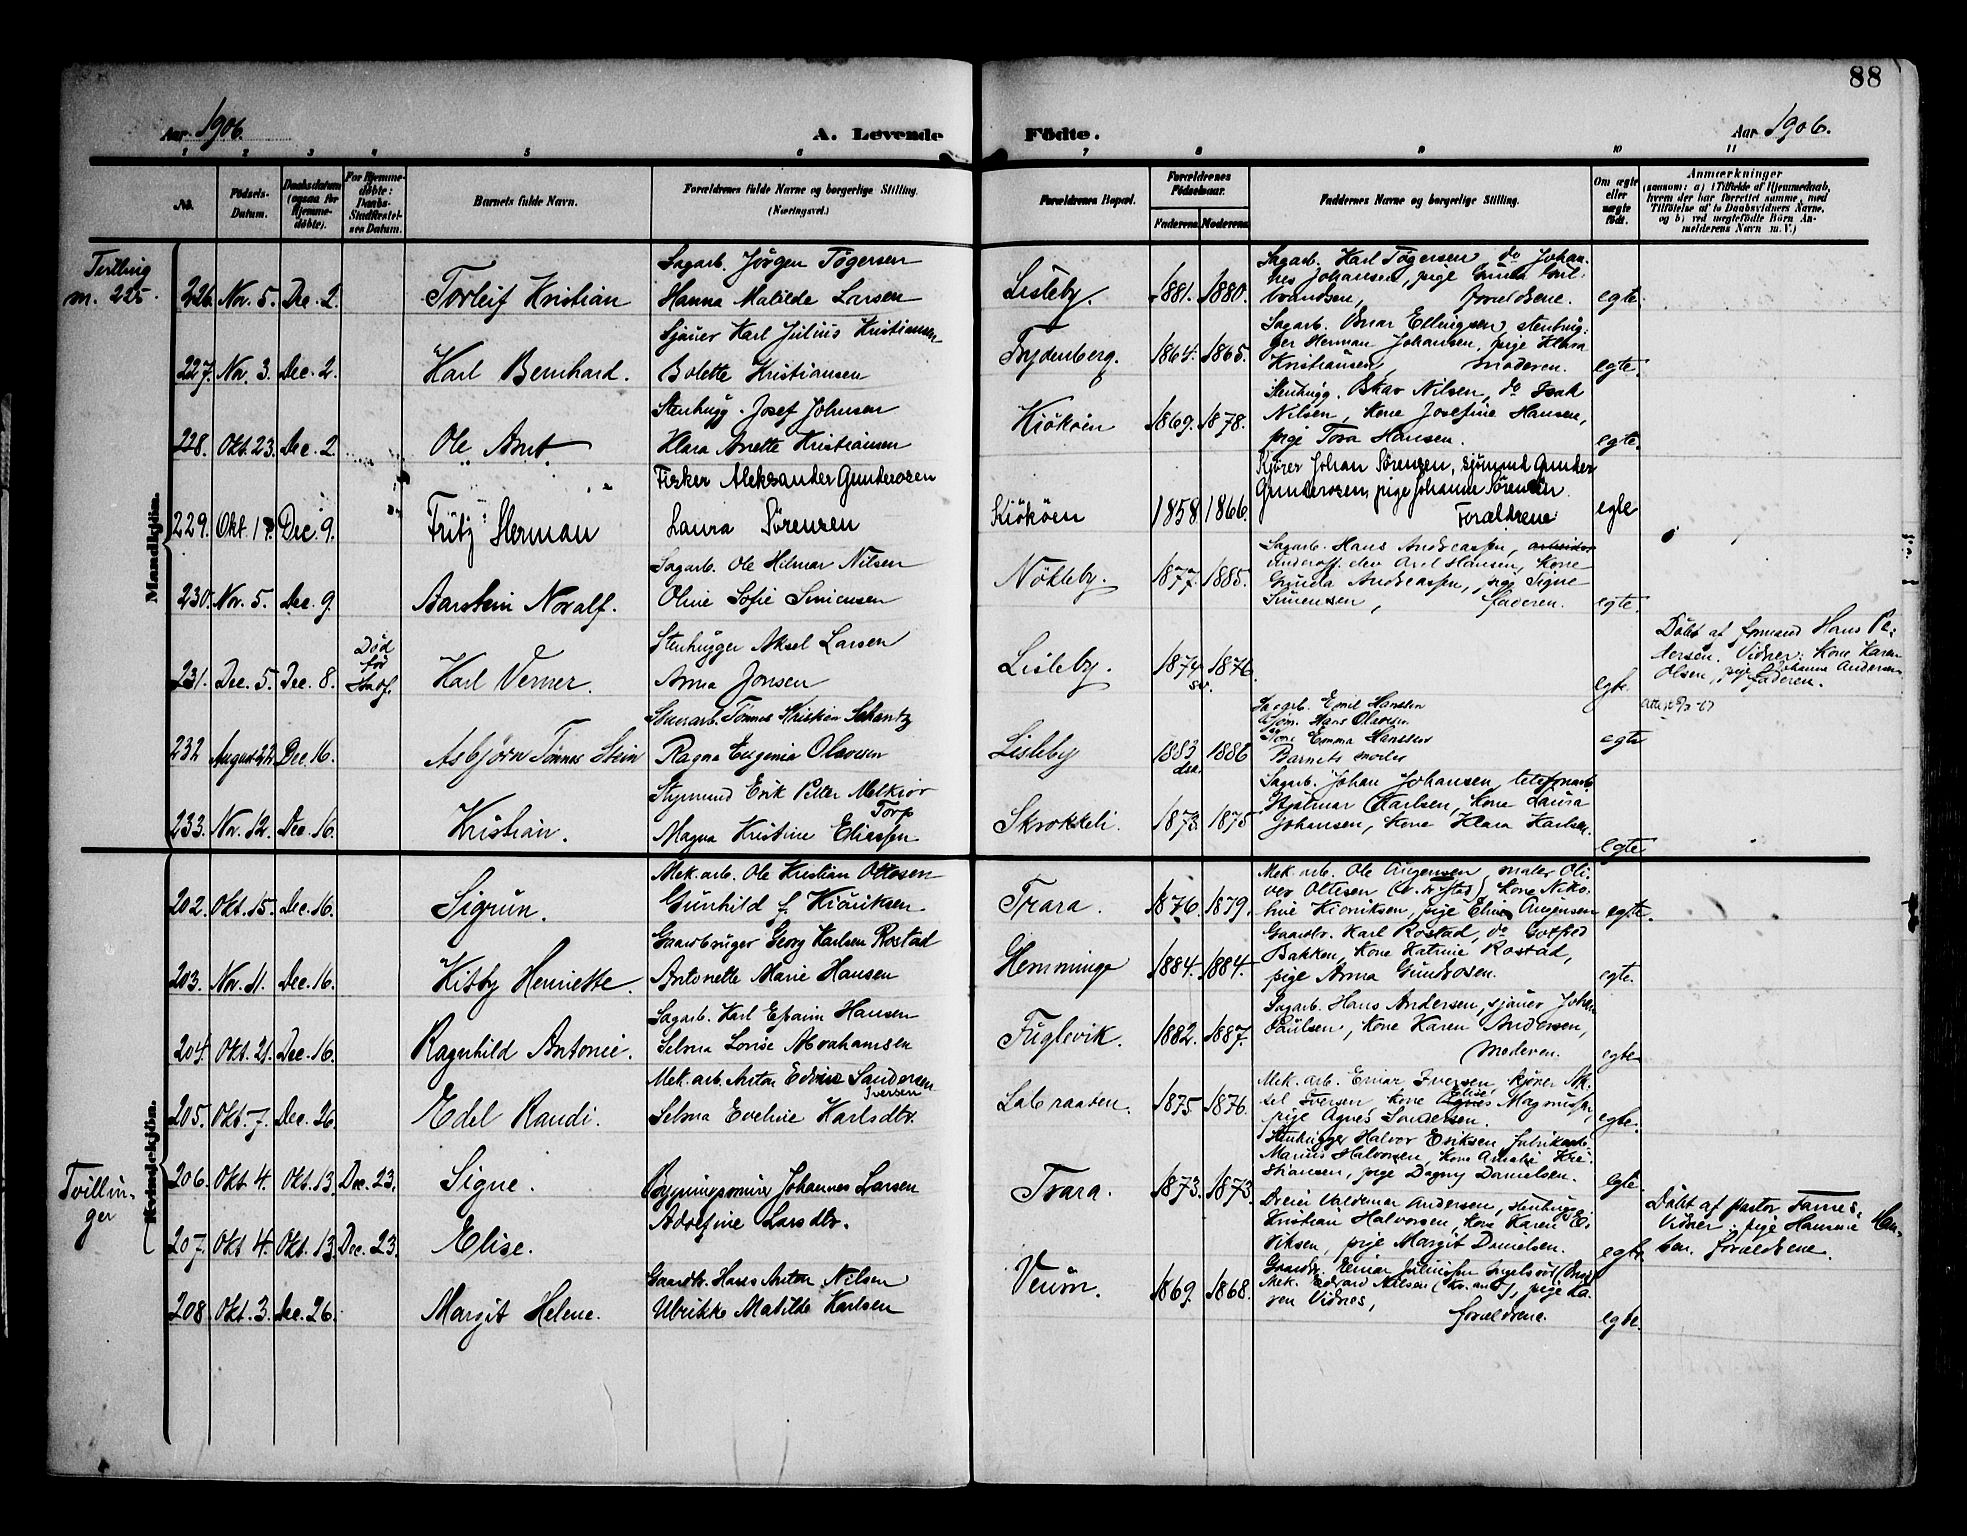 88
Aar 1906.
A. Levende Födte.
Aar 1906.
1 2 3 4 5 6 7 8 9 10 11
No.
Födsels-Datum.
Daabsdatum (ogsaa for Hjemmedöbte).
For Hjemmedöbte: Daabs-Stadfæstelsens Datum.
Barnets fulde Navn.
Forældrenes fulde Navne og borgerlige Stilling.
(Næringsvei.)
Forældrenes Bopæl.
Forældrenes Födselsaar.
Faderens Moderens
Faddernes Navne og borgerlige Stilling.
Om ægte eller uægte födt.
Anmærkninger
(saasom: a) i Tilfælde af Hjemmedaab, hvem der har forrettet samme, med Tilföielse af to Daabsvidners Navne, og b) ved uægtefödte Börn Anmelderens Navn m. V.)
Mandkjön.
Tvilling m. 225.
226. Nov. 5. Dec. 2. Torleif Kristian
Sagarb. Jörgen Tögersen
Hanna Matilde Larsen
Lisleby. 1881. 1880.
Sagarb. Karl Tögersen, do Johan-
nes Johansen, pige Gunda
Forældrene. egte.
227. Nov. 3. Dec. 2. Karl Bernhard.
Sjauer Karl Julius Kristiansen
Bolette Kristiansen
Trydenberg. 1864. 1865.
Sagarb. Einar Ellingsen, stenhug-
ger Herman Johansen, pige Klara
Kristiansen, moderen. egte.
228. Okt. 23. Dec. 2. Ole Arnt
Stenhugg. Josef Johnsen
Klara Anette Kristiansen
Kiököen 1869. 1878.
Stenhugg. Oskar Nilsen, do Isak
Nilsen, Kone Josefine Hansen,
pige Tora Hansen. egte.
229. Okt. Dec. 9. Fritz Herman
Fisker Aleksander Gundersen
Laura Sörensen
Kiököen 1858 1866.
Kjörer Johan Sörensen, sjömand Gunder
Gundersen, pige Johanne Sörensen
Forældrene egte
230. Nov. 5. Dec. 9. Aarstein Noralf.
Sagarb. Ole Hilmar Nilsen
Oline Sofie Simensen
Nökleby. 1877. 1885.
Sagarb. Hans Andreassen, arbeider
underoff. elev Axel Hansen, Kone
Gunda Andreassen, pige Signe
Simensen, faderen. egte.
231. Dec. 5. Dec. 8. Död før Stadf. Karl Verner.
Stenhugger Aksel Larsen
Anna Jonsen
Lisleby. 1874 sv. 1876
egte.
Döbt af formand Hans Pe-
tersen. Vidner: Kone Karen
Olsen, pige Johanne Andersen
faderen.
232 August 22 Dec. 16. Asbjørn Tønnes Stein
Stuerarb. Tønnes Kristian Schantz
Ragna Eugenia Olavesen
Lisleby 1883 1886
Sagarb. Emil Hansen
Sjøm. Hans Olavesen
Kone Emma Hanssen
Barnets moder
egte
233. Nov. 12. Dec. 16. Kristian.
Styrmand Erik Petter Melkior Torp
Magna Kristine Eliassen
Skrokkeli. 1873. 1875
Sagarb. Johan Johansen, telefonarb.
Hjalmar Karlsen, Kone Laura
Johansen, Kone Klara Karlsen.
egte
Kvindekjön.
202. Okt. 15. Dec. 16. Sigrun.
Mek. arb. Ole Kristian Ottesen
Gunhild f. Hendriksen
Trara. 1876. 1879.
Mek. arb. Ole Augensen, maler Oli-
ver Ottesen Kone Niko-
line pige Eline Augensen egte.
203. Nov. 11. Dec. 16. Kitty Henriette.
Gaardbruger Georg Karlsen Rostad
Antonette Marie Hansen
Hemminge 1884. 1884.
Gaardbr. Karl Rostad, do Gotfred
Bakken, Kone Katrine Rostad,
pige Anna Gundersen. egte.
204. Okt. 21. Dec. 16. Ragnhild Antonie.
Sagarb. Karl Efraim Hansen
Selma Lovise Abrahamsen
Fuglevik. 1882. 1887.
Sagarb. Hans Andersen, sjauer Johan
Paulsen, Kone Karen Andersen,
moderen. egte
205. Okt. 7. Dec. 26 Edel Randi.
Mek. arb. Anton Edvin Sandersen Iversen
Selma Eveline Karlsdtr.
Labraaten. 1875. 1876.
Mek. arb. Einar Iversen, kjörer Ak-
sel Iversen, Kone Agnes Elise Magnussen,
pige Agnes Sandersen. egte.
Tvillin-
ger
206. Okt. 4. Okt. 13. Dec. 23. Signe.
Bygningssnidk. Johannes Larsen
Adolfine Larsdtr.
Trara. 1873. 1873.
Stenhugger Halvor Eriksen, fabrikarb.
Marius Halvorsen, Kone Amalie Kri-
stiansen, pige Dagny Danielsen. egte.
207. Okt. 4. Okt. 13 Dec. 23. Elise.
Dreier Valdemar Andersen, stenhugg.
Kristian Halvorsen, Kone Karen E-
riksen, pige Margit Danielsen. egte.
Döbt af pastor
Vidner: pige Hannie Han-
sen. forældrene.
208. Okt. 3. Dec. 26. Margit Helene.
Gaardbr. Hans Anton Nilsen
Ulrikke Matilde Karlsen
Veum. 1869. 1868.
Gaardbr. Einar Juliussen
Mek. Edvard Nilsen pige Ka-
ren Vidnes, forældrene. egte.